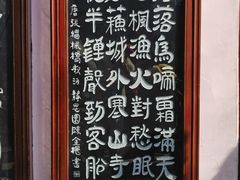 落烏啼霜滿天
楓漁火對愁眠
蘇城外寒山寺
半鐘聲到客船
唐張繼楓橋夜泊